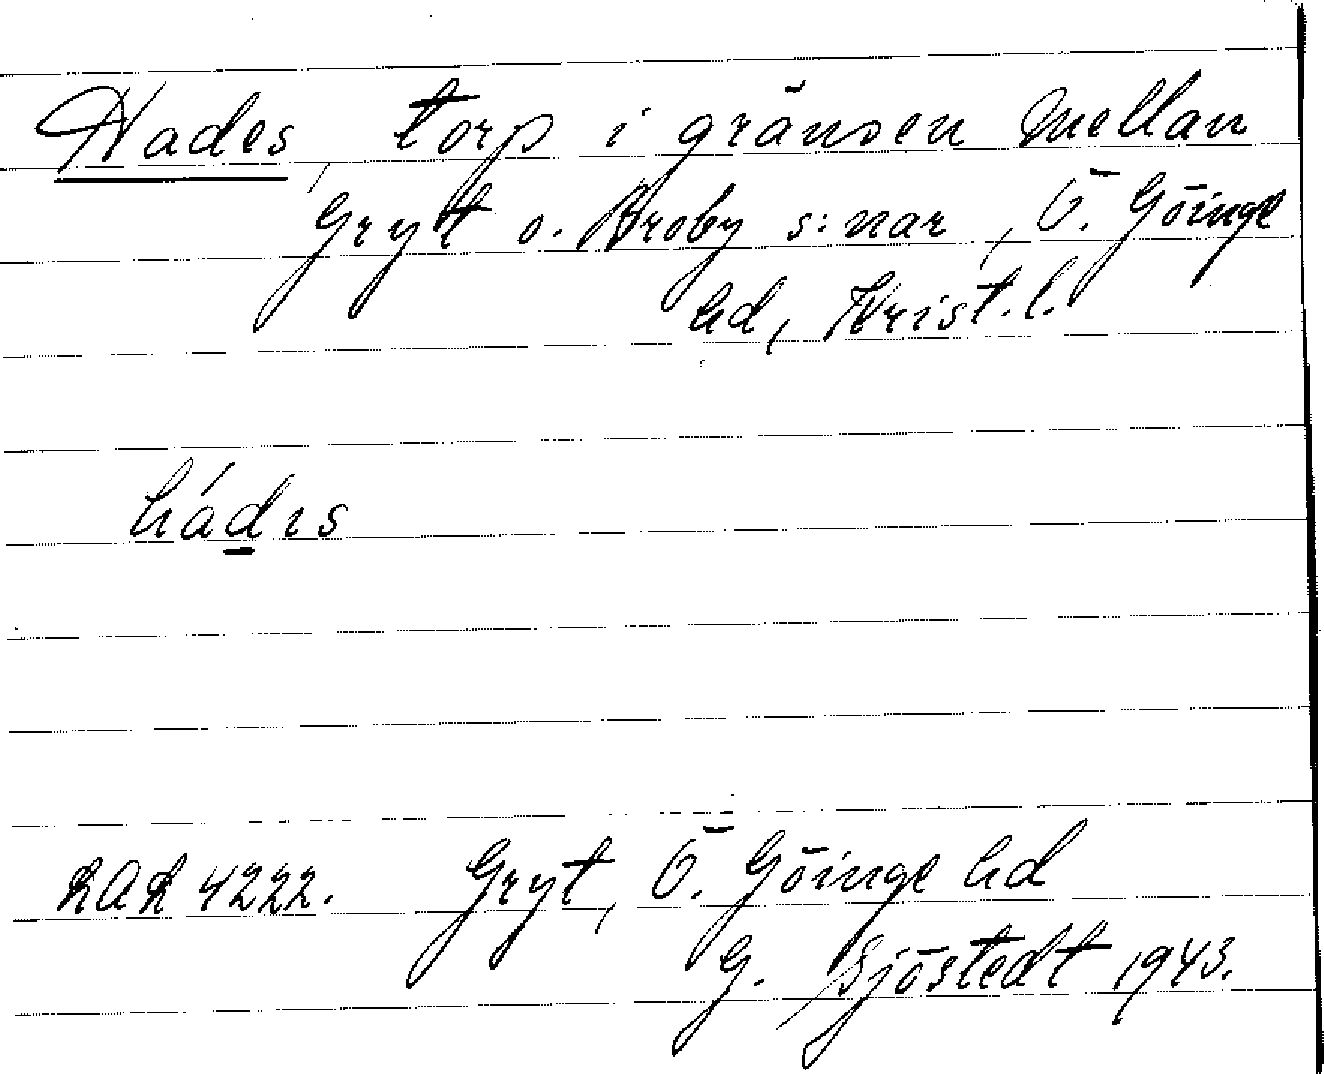 Hades, torp i gränsen mellan
Gryt o. Broby s:nar, Ö. Göinge
hd, Krist. l.
hádıs
LAL 4222. Gryt, Ö. Göinge hd
G. Sjöstedt 1943.